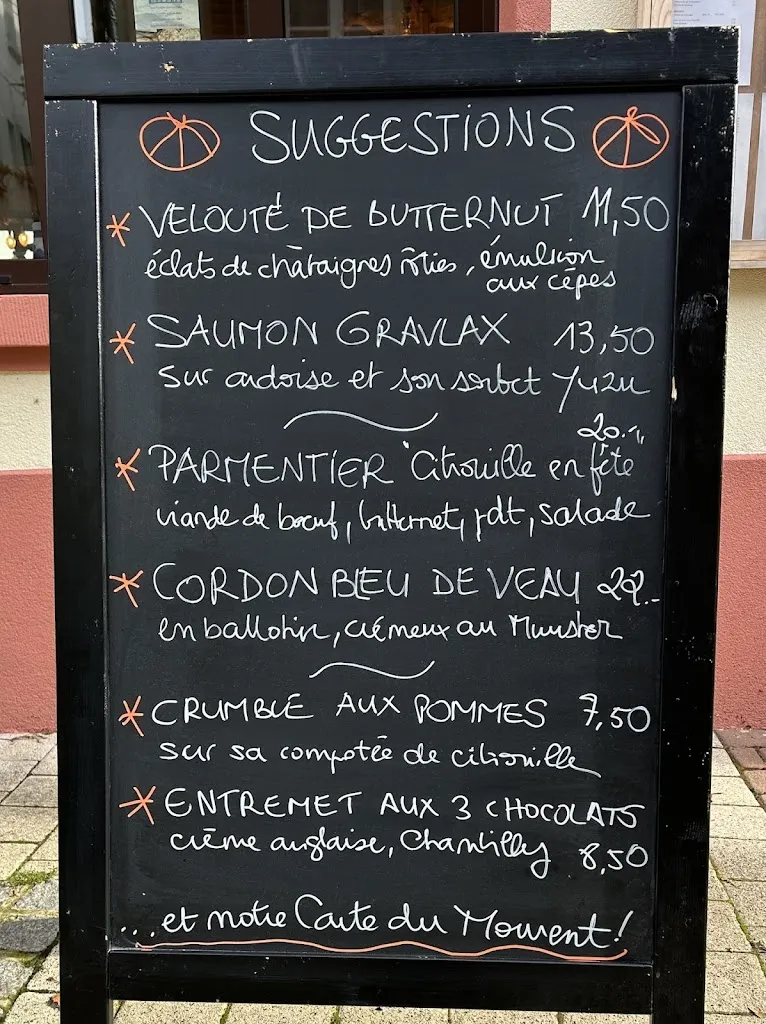 SUGGESTIONS
* VELOUTÉ DE BUTTERNUT 11,50
éclats de châtaignes rôties, émulsion
aux cèpes
* SAUMON GRAVLAX 13,50
sur ardoise et son sorbet Yuzu
20.-
* PARMENTIER "Citrouille en fête
viande de bœuf, butternet, pdt, salade
* CORDON BLEU DE VEAU 22.-
en ballotin, crémeux au Munster
* CRUMBLE AUX POMMES 7,50
sur sa compotée de citrouille
* ENTREMET AUX 3 CHOCOLATS
crème anglaise, Chantilly 8,50
...et notre Carte du Moment!